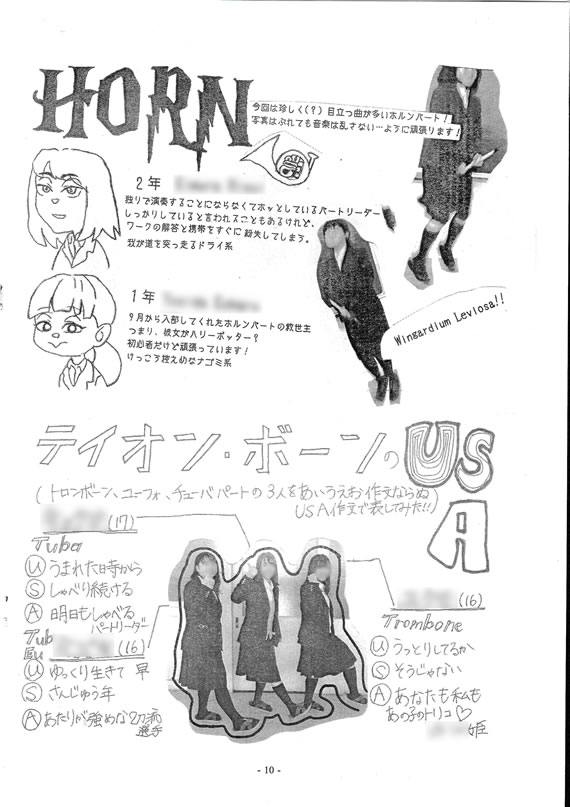 HORN
今回は珍しく(?)目立つ曲が多いホルンパート!
写真はぶれても音楽は乱さない…ように頑張ります!
2年
独りで演奏することにならなくてホッとしているパートリーダー
しっかりしていると言われることもあるけれど、
ワークの解答と携帯をすぐに紛失してしまう。
我が道を突っ走るドライ系
1年
9月から入部してくれたホルンパートの救世主
つまり、彼女がハリーポッター?
初心者だけど頑張っています!
けっこう控えめなナゴミ系
Wingardium Leviosa!!
テイオン・ボーンのUSA
(トロンボーン、ユーフォ、チューバパートの3人をあいうえお作文ならぬ
USA作文で表してみた!!)
(17)
Tuba
Ⓤうまれた時から
Ⓢしゃべり続ける
Ⓐ明日もしゃべる
パートリーダー
(16)
Ⓤゆっくり生きて 早
Ⓢさんじゅう年
Ⓐあたりが強めな2刀流
選手
(16)
Trombone
Ⓤうっとりしてるか
Ⓢそうじゃない
Ⓐあなたも私も
あの子のトリコ♡
姫
- 10 -